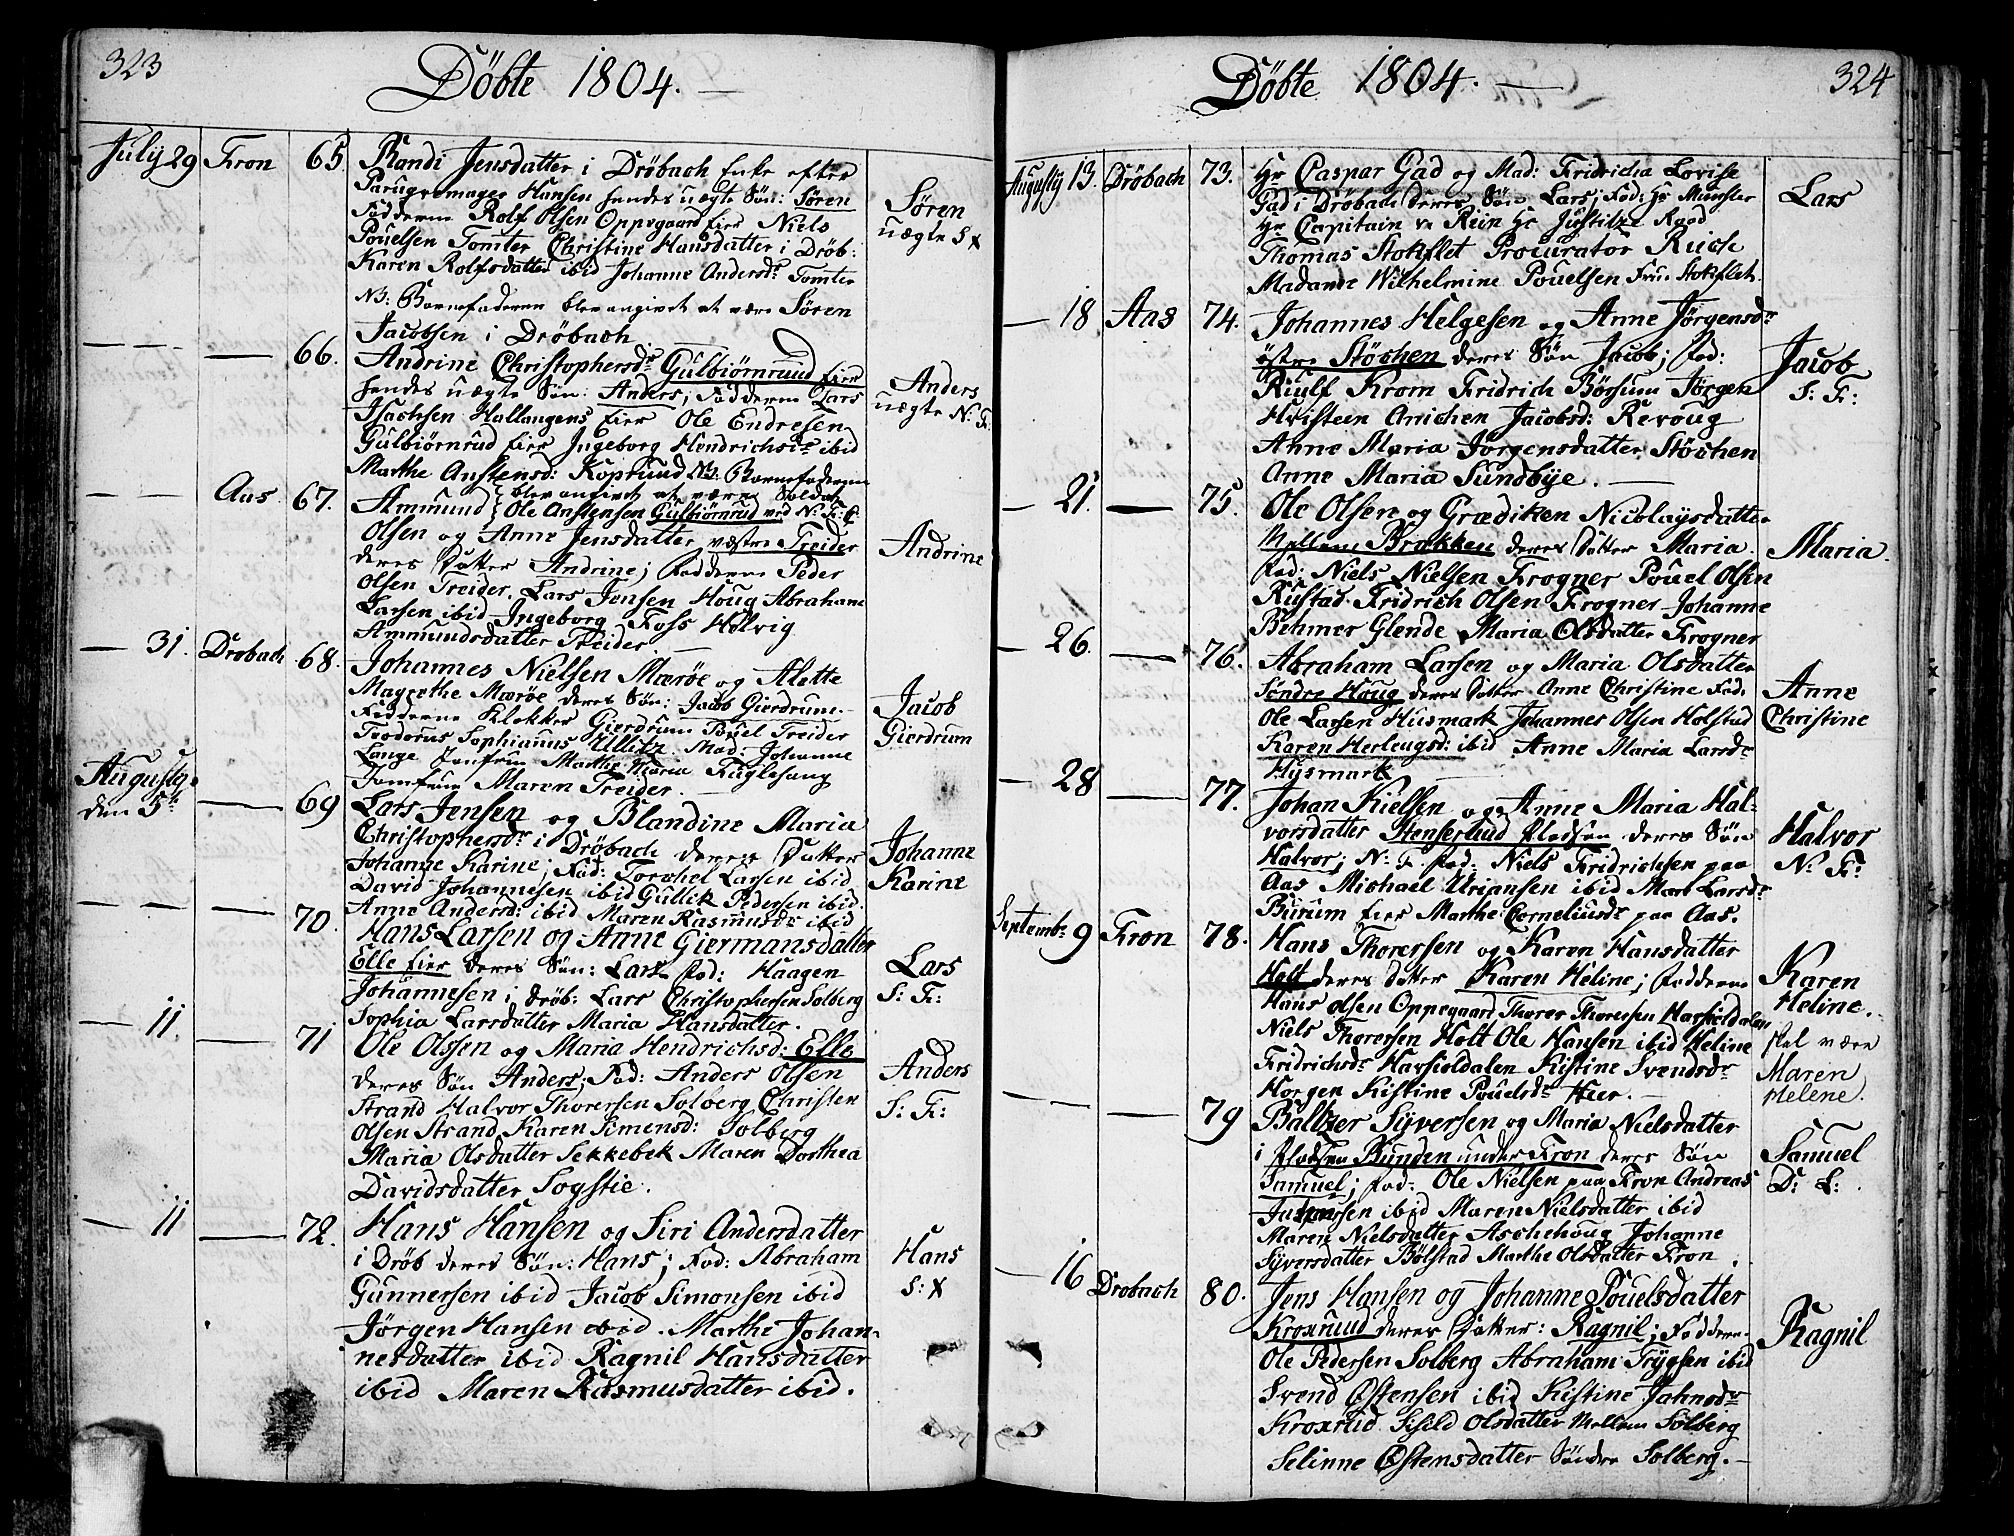 323
Döbte 1804.
July 29 Fron 65. Randi Jensdatter i Dröbach Enke efter
Parugvemager Hansen hendes uægte Sön: Sören
Fadderne Rolf Olsen Oppegaard Eier Niels
Pouelsen Tomter Christine Hansdatter i Dröb:
Karen Rolfsdatter ibid Johanne Andersdr Tomter
NB: Barnefaderen blev angivet at være Sören
Jacobsen i Dröbach
Sören
uægte S X
66. Andrine Christophersdr Gulbiörnrud Eier
hendes uægte Sön: Anders; Fadderne Lars
Isachsen Hallangens Eier Ole Endresen
Gulbiörnrud Eier Ingeborg Hendrichsdr ibid
Marthe Anstensd: Koprund NB: Barnefaderen
blev angivet at være Soldat
Ole Anstensen Gulbiörnrud ved N: F: C:
Anders
uægte N: F:
Aas 67. Ammund
Olsen og Anne Jensdatter vestre Treider
deres Datter Andrine; Fadderne Peder
Olsen Treider. Lars Jensen Houg Abraham
Larsen ibid Ingeborg Foss Helvig
Ammundsdatter Treider.
Andrine
31. Dröbach 68. Johannes Nielsen Mæröe og Alette
Magrethe Mæröe deres Sön: Jacob Gierdrum
Fadderne Klokker Gierdrum Pouel Treider
Teodorus Sophianus Ullitz. Mad: Johanne
Lange Jomfrue Marthe Maria Fuglesang
Jomfrue Maren Treider.
Jacob
Gierdrum
Augusty
den 5te 69 Lars Jensen og Blandine Maria
Christophersdr i Dröbach deres Datter
Johanne Karine; Fad: Torchel Larsen ibid
David Johannesen ibid Gullik Pedersen ibid.
Anne Andersd: ibid Maren Rasmusdr ibid
Johanne
Karine
70. Hans Larsen og Anne Giermansdatter
Elle Eier deres Sön: Lars Fad: Haagen
Johannesen i Dröb: Lars Christophersen Solberg
Sophia Larsdatter Maria Hansdatter.
Lars
S: F:
11. 71 Ole Olssen og Maria Hendrichsd: Elle
deres Sön Anders; Fad: Anders Olsen
Strand Halvor Thorersen Solberg Christen
Olsen Strand Karen Simensd: Solberg
Maria Olsdatter Sekkebek Maren Dorthea
Davidsdatter Sogstie.
Anders
S: F:
11 72. Hans Hansen og Siri Andersdatter
i Dröb deres Sön: Hans; Fad: Abraham
Gunnersen ibid Jacob Simonsen ibid
Jörgen Hansen ibid. Marthe Johan-
nesdatter ibid Ragnil Hansdatter
ibid Maren Rasmusdatter ibid.
Hans
S: X
324
Döbte 1804.
Augusty 13. Dröbach 73. Hr Caspar Gad og Mad: Fridricha Lovise
Gad i Dröbach deres Sön Lars; Fad: Hr Münster
Hr Capitain v Rein Hr Justitz Raad
Thomas Stokflet Procurator Reich
Madame Wilhelmine Pouelsen Frue Stokflet.
Lars
18 Aas 74. Johannes Helgesen og Anne Jörgensdr
östre Stöchen deres Sön Jacob; Fad:
Riulf Krom Fridrich Börsum Jörgen
Hvisteen Anichen Jacobsd: Revoug
Anne Maria Jörgensdatter Stöchen
Anne Maria Sundbye.
Jacob
S: F:
21. 75. Ole Olsen og Grædiken Nicolaysdatter
Mellem Brækken deres Datter Maria.
Fad: Niels Nielsen Frogner Pouel Olsen
Rustad. Fridrich Olsen Frogner Johanne
Behmer Glende Maria Olsdatter Frogner
Maria.
26. 76. Abraham Larsen og Maria Olsdatter
Söndre Houg deres Datter Anne Christine Fad.
Ole Larsen Husmark Johannes Olsen Holstad
Karen Herlengsd: ibid Anne Maria Larsdr
Husmark
Anne
Christine
28 77. Johan Kielsen og Anne Maria Hal-
vorsdatter Stenserlund Pladsen deres Sön
Halvor; N: F. Fad: Niels Fridrichsen paa
Aas Michael Uriansen ibid Mari Larsdr
Burum Eier Marthe Corneliusdr paa Aas.
Halvor
N: F:
Septembr 9 Fron 78. Hans Thorersen og Karen Hansdatter
Holt deres Datter Karen Heline; Fadderne
Hans Olsen Oppegaard Thorer Thoresen Harsioldalen
Niels Thorersen Holt Ole Hansen ibid Heline
Fridrichsdr Harsioldalen Kistine Svendsdr
Horgen Kistine Pouelsdr Heer.
Karen
Heline.
skal være
Maren
Helene.
79 Baltzer Syversen og Maria Nielsdatter
i Pladsen Bunden under Fron deres Sön
Samuel; Fad: Ole Nielsen paa Fron Andreas
Jespersen ibid Maren Nielsdatter ibid
Maren Nielsdatter Aschehoug Johanne
Syversdatter Bölstad Marthe Olsdatter Fron.
Samuel
D: L:
16 Dröbach 80. Jens Hansen og Johanne Pouelsdatter
Kroxrud deres Datter: Ragnil; Faddere
Ole Pedersen Solberg Abraham Trygsen ibid
Svend Östensen ibid Kistine Jahnsdr
Kroxrud Sisild Olsdatter Mellem Solberg
Selinne Östensdatter Söndre Solberg.
Ragnil